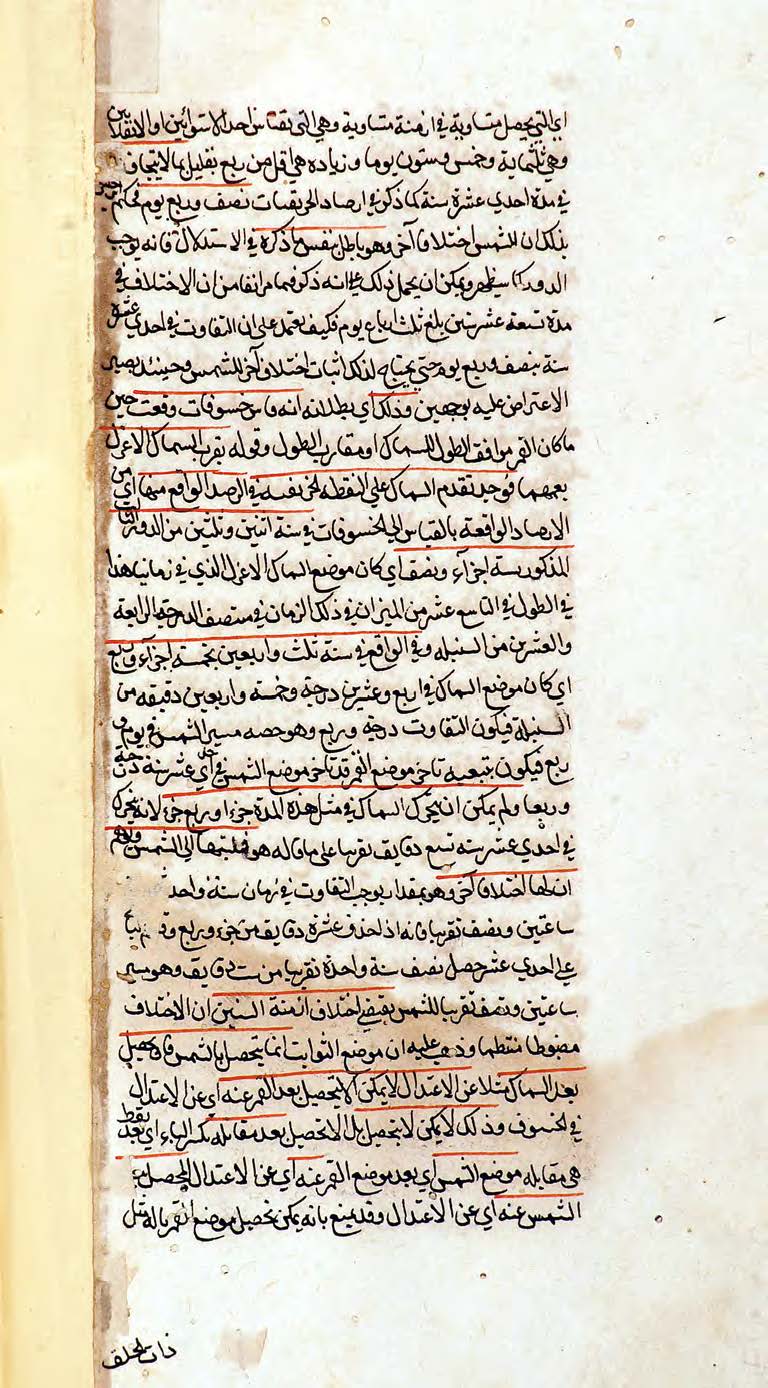 اي التي يحصل متساوية في ازمنة متساوية وهي التي تقتاس احد الاستوائين او الانقلابين
وهي ثلثماية وخمس وستون يوما وزيادة هي اقل من ربع بقليل بها لايتجاف
في مدة احدي عشرة سنة كما ذكر في ارصاد الخريفيات نصف وربع يوم فحكم ابرخس
بذلك ان للشمس اختلافا آخر وهو باطل بنفس ما ذكره في الاستدلال فانه يوجب
الدور كما سيظهر ويمكن ان يحمل ذلك علي انه ذكر فيما مر انفا من ان الاختلاف في
مدة تسعة عشر سنين بلغ ثلث ارباع يوم فكيف يعتمد علي ان التفاوت في احدي عشرة
سنة بنصف وربع يوم حتي يحتاج لذلك اثبات اختلاف آخر للشمس وحينئذ يصير
الاعتراض عليه بوجهين وذلك اي بطلانه انه قاس خسوفات وقعت حين
ما كان القمر موافق الطول للسماك او مقارب الطول وقوله بقرب السماك الاعزل
يعمهما فوجد تقدم السماك علي النقطة الخريفية في الرصد الواقع منها اي من
الارصاد الواقعة بالقياس الي الخسوفات في سنة اثنين وثلثين من الدور الثالث
المذكور ستة اجزآء ونصف اي كان موضع السماك الاعزل الذي في زماننا هذا
في الطول في التاسع عشر من الميزان في ذلك الزمان في منتصف الدرجة الرابعة
والعشرين من السنبله وفي الواقع في سنة ثلث واربعين بخمسة اجزآء وربع
اي كان موضع السماك في اربع وعشرين درجة وخمسة واربعين دقيقه من
السنبلة فيكون التفاوت درجة وربع وهو حصه مسير الشمس في يوم و
ربع فيكون بتبعية تاخر موضع القمر قد تاخر موضع الشمس في احدي عشر سنة درجة
وربعا ولم يمكن ان يتحرك السماك في مثل هذه المدة جزءا وربع جزء لانه يتحرك
في احدي عشر سنه تسع دقايق تقريبا علي ما قاله هو فنسبها الي الشمس وتوهم
ان لها اختلافا آخر وهو بمقدار يوجب التفاوت في زمان سنة واحدة
ساعتين ونصف تقريبا فانه اذا حذف عشرة دقايق من جزء وربع وقسم الباقي
علي احدي عشر حصل نصف سنة واحدة تقريبا من ست دقايق وهو مسير
ساعتين ونصف تقريبا للشمس يقتضي اختلاف ازمنة السنين ان الاختلاف
مضبوطا منتظما وذهب عليه ان موضع الثوابت انما يتحصل بالشمس فانه يحصل
بعد السماك مثلا عن الاعتدال لا يمكن الا بتحصيل بعد القمر عنه اي عن الاعتدال
في الخسوف وذلك لا يمكن لا بتحصيل بل الا بتحصيل بعد مقابله بكسر الباء اي بعد نقطة
هي مقابله موضع الشمس اي بعد موضع القمر عنه اي عن الاعتدال المحصل ببعد
الشمس عنه اي عن الاعتدال وقد يمنع بانه يمكن تحصيل موضع القمر باله مثل
ذات الحلق